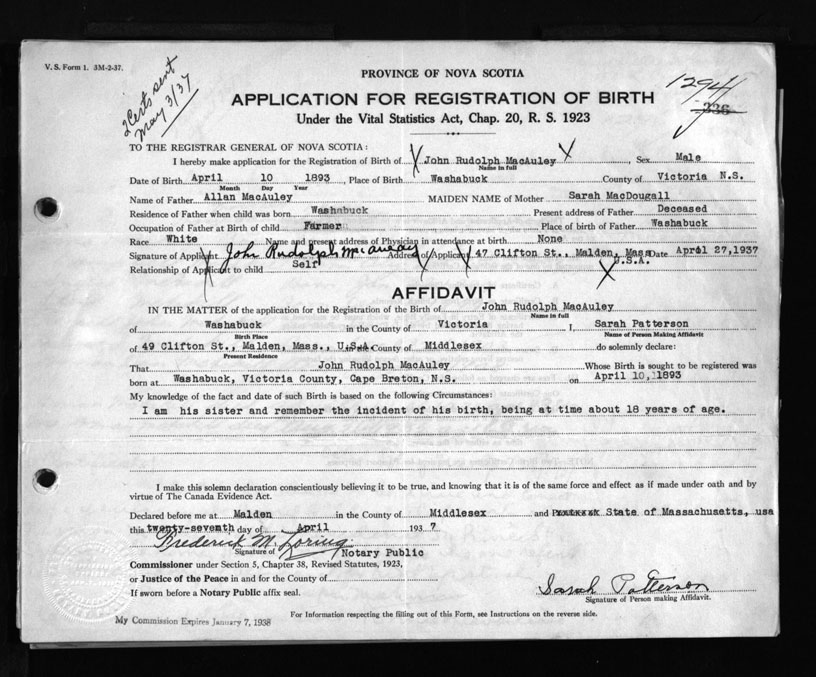 V. S. Form 1. 3M-2-37.
2 Certs sent
May 3/37
PROVINCE OF NOVA SCOTIA
1294
336
APPLICATION FOR REGISTRATION OF BIRTH
Under the Vital Statistics Act, Chap. 20, R. S. 1923
TO THE REGISTRAR GENERAL OF NOVA SCOTIA:
I hereby make application for the Registration of Birth of X John Rudolph MacAuley X, Sex Male
Name in full
Date of Birth April 10 1893, Place of Birth Washabuck County of Victoria N.S.
Month Day Year
Name of Father Allan MacAuley MAIDEN NAME of Mother Sarah MacDougall
Residence of Father when child was born Washabuck Present address of Father Deceased
Occupation of Father at Birth of child Farmer Place of birth of Father Washabuck
Race White Name and present address of Physician in attendance at birth None
Signature of Applicant John Rudolph Address of Applicant 47 Clifton St., Malden, Mass Date April 27, 1937
U.S.A.
Relationship of Applicant to child Self
AFFIDAVIT
IN THE MATTER of the application for the Registration of the Birth of John Rudolph MacAuley
Name in full
of Washabuck in the County of Victoria I, Sarah Patterson
Birth Place Name of Person Making Affidavit
of 49 Clifton St., Malden, Mass., U.S.A. in the County of Middlesex do solemnly declare:
Present Residence
That John Rudolph MacAuley Whose Birth is sought to be registered was
born at Washabuck, Victoria County, Cape Breton, N.S. on April 10, 1893
My knowledge of the fact and date of such Birth is based on the following Circumstances:
I am his sister and remember the incident of his birth, being at time about 18 years of age.
I make this solemn declaration conscientiously believing it to be true, and knowing that it is of the same force and effect as if made under oath and by
virtue of The Canada Evidence Act.
Declared before me at Malden in the County of Middlesex and State of Massachusetts, usa
this twenty-seventh day of April 1937
Frederick M. Loring
Signature of Notary Public
Commissioner under Section 5, Chapter 38, Revised Statutes, 1923,
or Justice of the Peace in and for the County of
If sworn before a Notary Public affix seal.
Sarah Patterson
Signature of Person making Affidavit.
For Information respecting the filling out of this Form, see Instructions on the reverse side.
My Commission Expires January 7, 1938